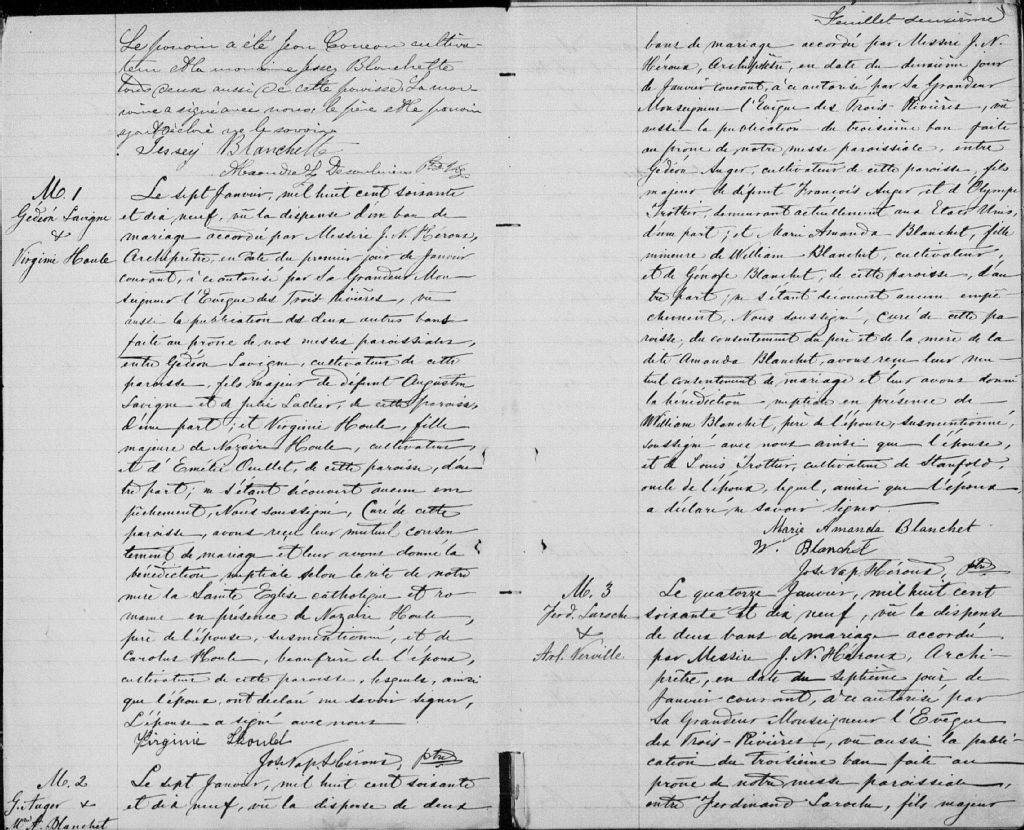 Le parrain a été Jean Comeau cultiva-
teur et la marraine Jessey Blanchette
tous deux aussi de cette paroisse. La mar-
raine a signé avec nous; le père et le parrain
ayant déclaré ne le savoir.
Jessey Blanchette
Ptre Vic
M. 1
Gédéon Lavigne
&
Virginie Houle
Le sept Janvier, mil huit cent soixante
et dix neuf, vû la dispense d'un ban de
mariage accordée par Messire J. N. Héroux,
Archiprêtre, en date du premier jour de Janvier
courant, à ce autorisé par Sa Grandeur Mon-
seigneur l'Evêque des Trois Rivières, vu
aussi la publication des deux autres bans
faite au prône de nos messes paroissiales,
entre Gédéon Lavigne, cultivateur de cette
paroisse, fils majeur de défunt Augustin
Lavigne et de Julie Lallier, de cette paroisse,
d'une part; et Virginie Houle, fille
majeure de Nazaire Houle, cultivateur,
et d'Emélie Ouellet, de cette paroisse, d'au-
tre part; ne s'étant découvert aucun em-
pêchement, Nous soussigné, Curé de cette
paroisse, avons reçu leur mutuel consen-
tement de mariage et leur avons donné la
bénédiction nuptiale selon le rite de notre
mère la Sainte Eglise catholique et ro-
maine en présence de Nazaire Houle,
père de l'épouse, susmentionné, et de
Carolus Houle, beaufrère de l'époux,
cultivateur de cette paroisse, lesquels, ainsi
que l'époux, ont déclaré ne savoir signer,
L'épouse a signé avec nous
Virginie Hould
Jos. Nap. Héroux, ptre
M. 2
G. Auger &
Mie A. Blanchet
Le sept Janvier, mil huit cent soixante
et dix neuf, vû la dispense de deux
Feuillet deuxième
bans de mariage accordé par Messire J. N.
Héroux, Archiprêtre, en date du deuxième jour
de Janvier courant, à ce autorisé par Sa Grandeur
Monseigneur l'Evêque des Trois-Rivières, vû
aussi la publication du troisième ban faite
au prône de notre messe paroissiale, entre
Gédéon Auger, cultivateur de cette paroisse, fils
majeur de défunt François Auger et d'Olympe
Trottier, demeurant actuellement aux Etats-Unis,
d'une part; et Marie Amanda Blanchet, fille
mineure de William Blanchet, cultivateur,
et de Blanchet, de cette paroisse, d'au-
tre part; ne s'étant découvert aucun empê-
chement, Nous soussigné, Curé de cette pa-
roisse, du consentement du père et de la mère de la
dite Amanda Blanchet, avons reçu leur mu-
tuel consentement de mariage et leur avons donné
la bénédiction nuptiale en présence de
William Blanchet, père de l'épouse, susmentionné,
soussigné avec nous ainsi que l'épouse,
et de Louis Trottier, cultivateur de Stanfold,
oncle de l'époux, lequel, ainsi que l'époux,
a déclaré ne savoir signer.
Marie Amanda Blanchet
W. Blanchet
Jos. Nap. Héroux, ptre
M. 3
Ferd. Laroche
&
Arl. Verville
Le quatorze Janvier, mil huit cent
soixante et dix neuf, vû la dispense
de deux bans de mariage accordé
par Messire J. N. Héroux, Archi-
prêtre, en date du septième jour de
Janvier courant, à ce autorisé par
Sa Grandeur Monseigneur l'Evêque
des Trois-Rivières, vu aussi la publi-
cation du troisième ban faite au
prône de notre messe paroissiale,
entre Ferdinand Laroche, fils majeur